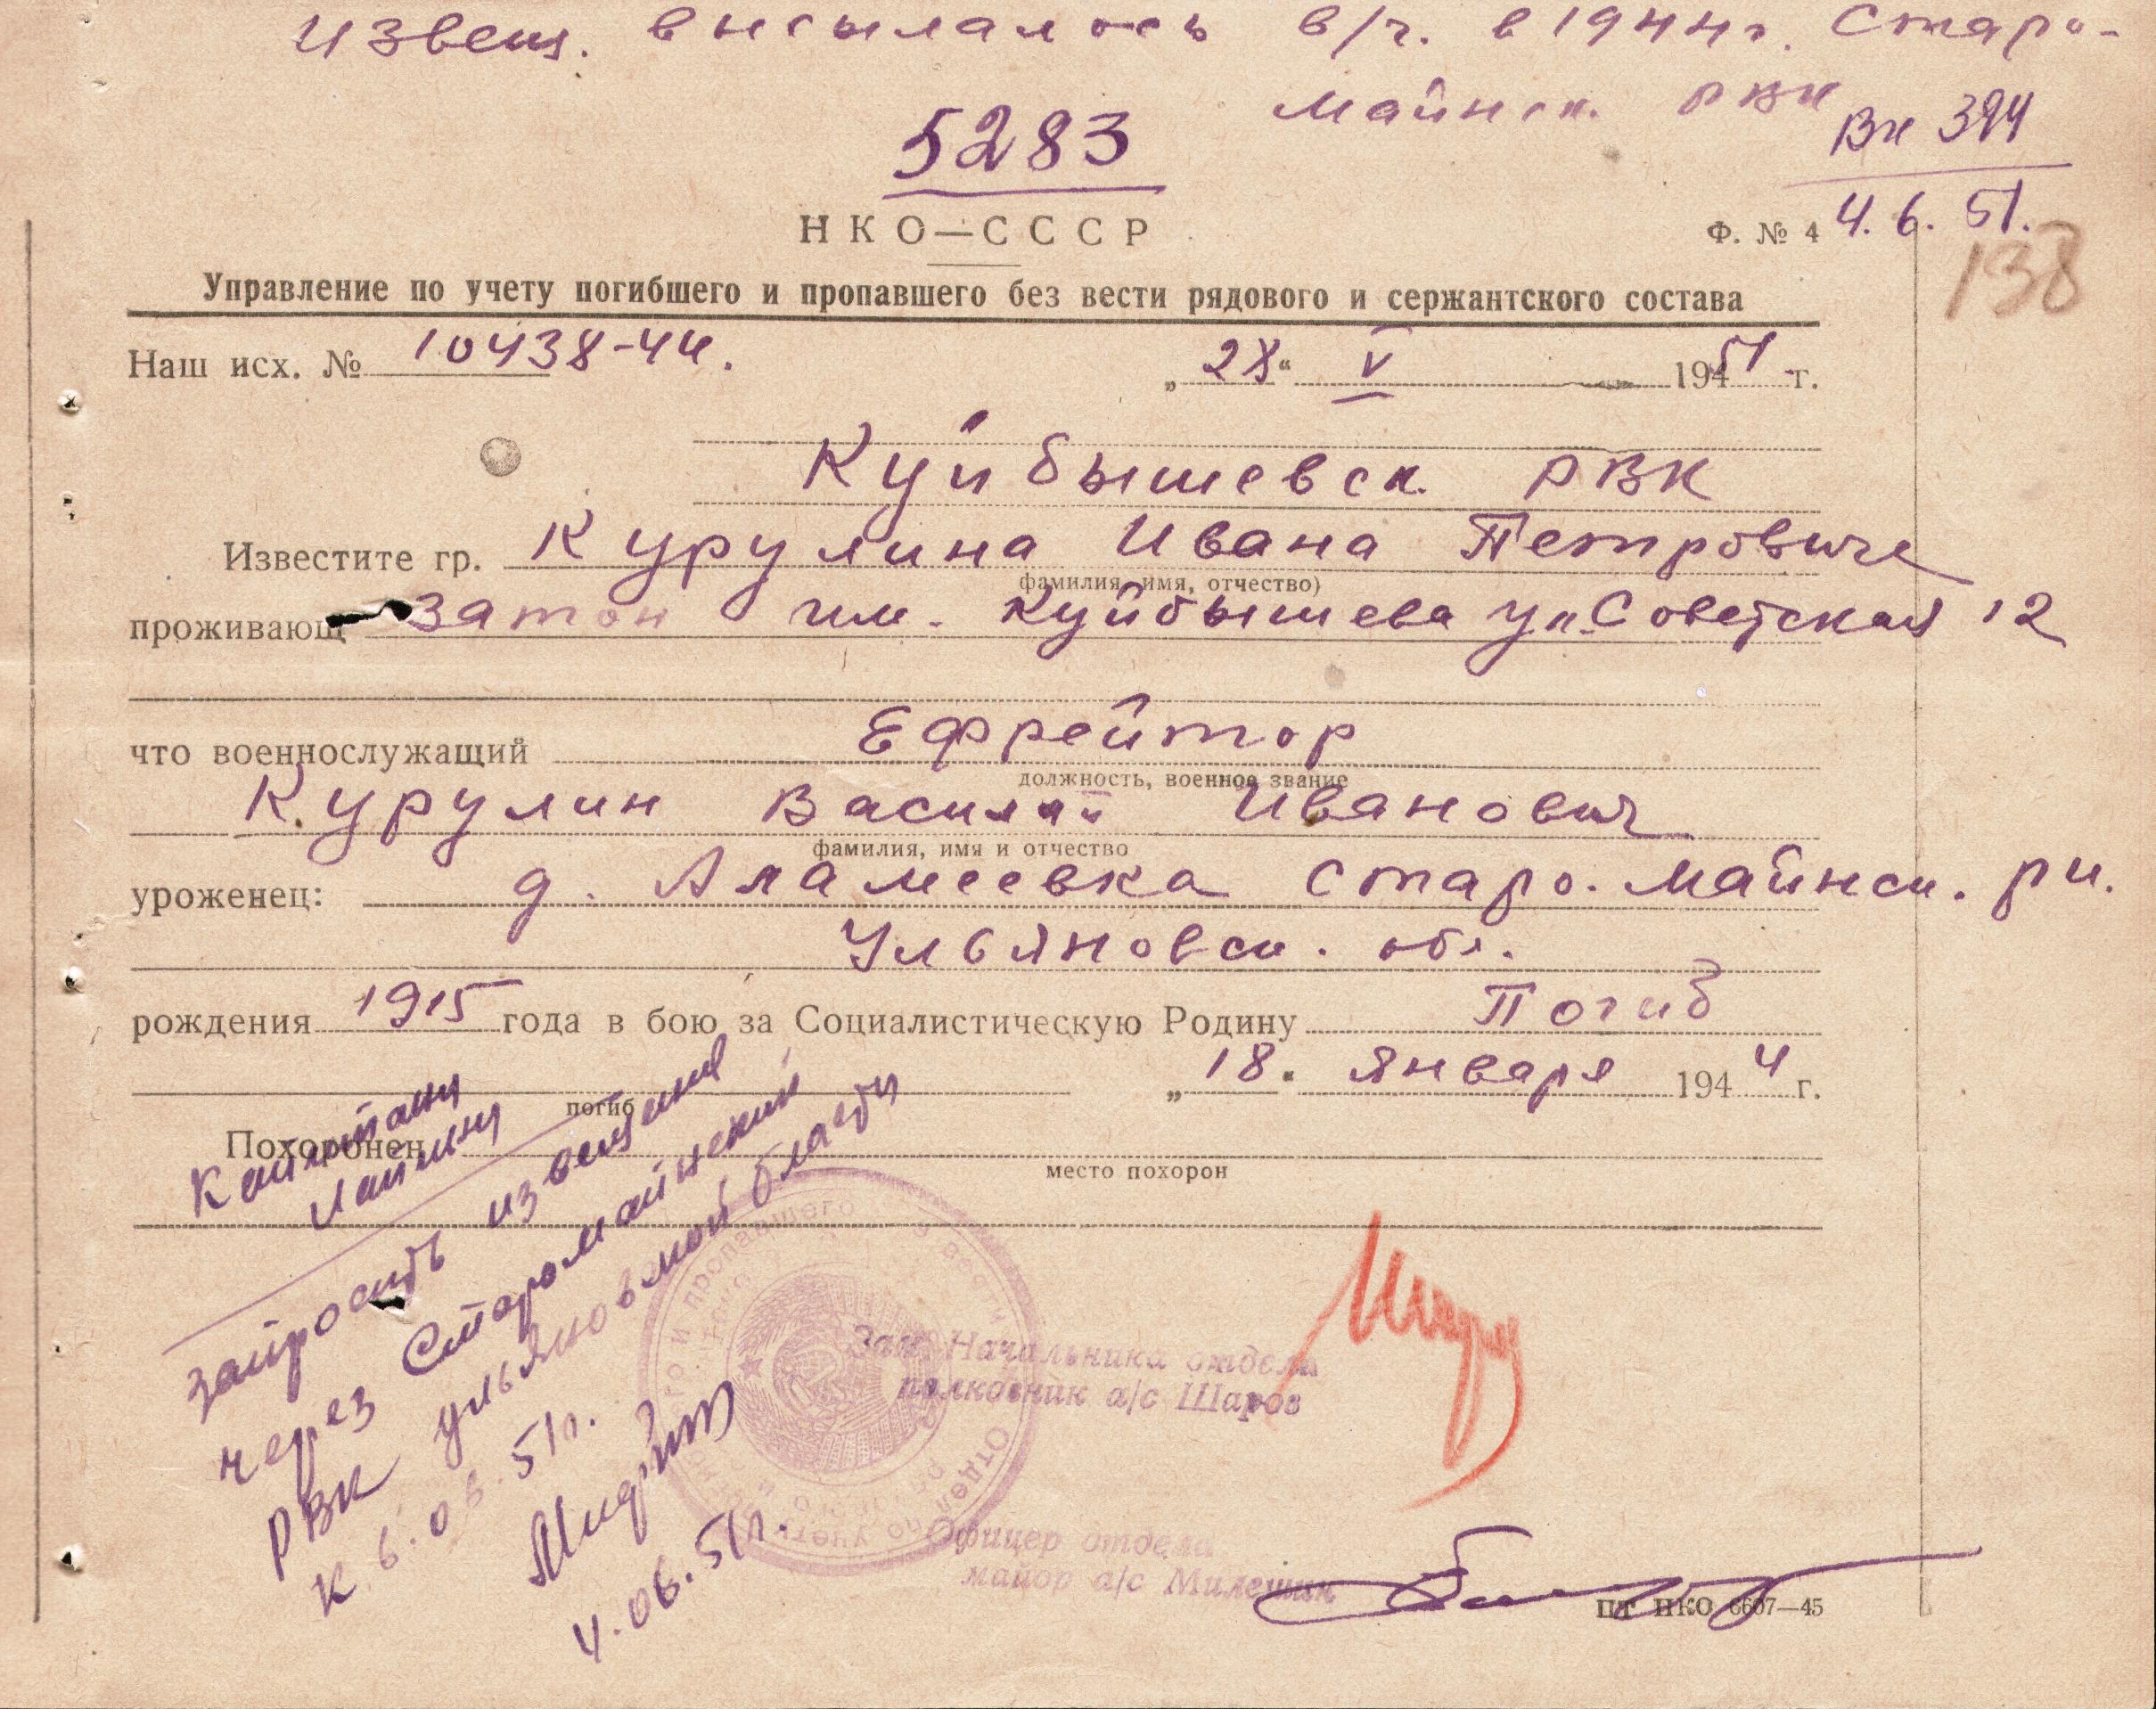 Извещ. высылалось в/ч. в 1944г. Старо-
майнск. РВК
Вх 394
5283
4.6.51.
НКО—СССР
Ф. № 4
138
Управление по учету погибшего и пропавшего без вести рядового и сержантского состава
Наш исх. № 10438-44. „28“ V 1951 г.
Куйбышевск. РВК
Известите гр. Курулина Ивана Петровича
фамилия, имя, отчество)
проживающ Затон им. Куйбышева ул. Советская 12
что военнослужащий Ефрейтор
должность, военное звание
Курулин Василий Иванович
фамилия, имя и отчество
уроженец: д. Аламеевка Старо. майнск. рн.
Ульяновск. обл.
рождения 1915 года в бою за Социалистическую Родину Погиб
„18“ января 1944 г.
погиб
Похоронен
место похорон
Капитану
Лапину
запросить извещение
через Старомайнский
РВК Ульяновской области
К 6.06.51г.
4.06.51г.
Зам. Начальника отдела
полковник а/с Шаров
Офицер отдела
майор а/с Милешин
ПТ НКО 6607—45